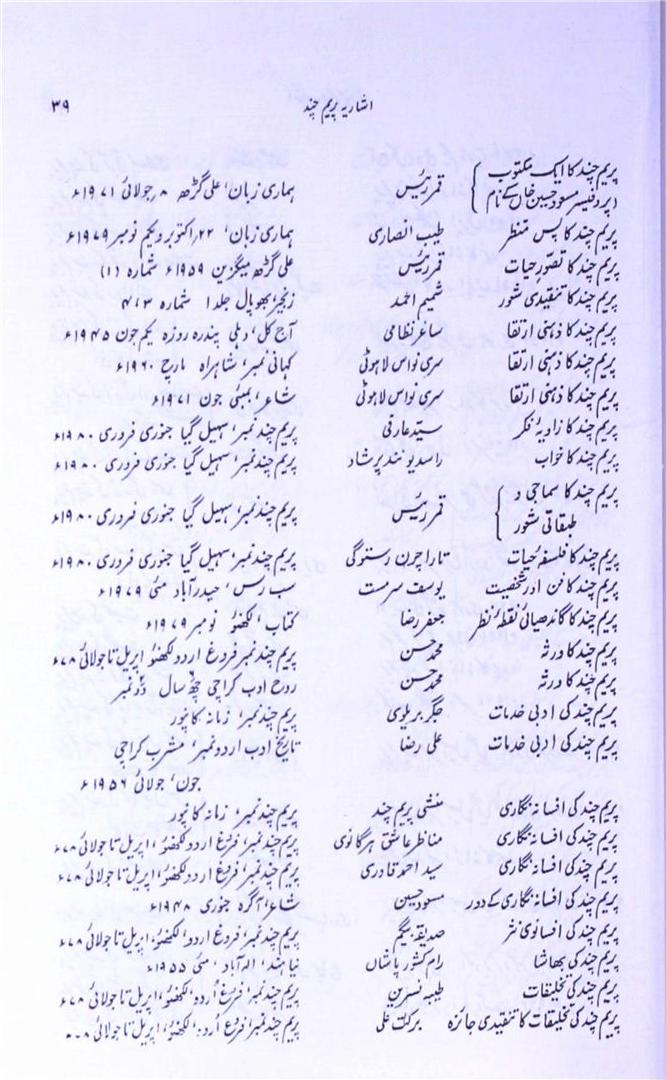 اشاریہ پریم چند ۳۹
پریم چند کا ایک مکتوب
(پروفیسر مسعود حسین خاں کے نام) قمر رئیس ہماری زبان، علی گڑھ ۸ر جولائی ۱۹۷۱ء
پریم چند کا پس منظر طیب انصاری ہماری زبان، ۲۲ر اکتوبر و یکم نومبر ۱۹۷۹ء
پریم چند کا تصورِ حیات قمر رئیس علی گڑھ میگزین ۱۹۵۹ء شمارہ (۱)
پریم چند کا تنقیدی شعور شمیم احمد بھوپال جلد ۱ شمارہ ۳، ۴
پریم چند کا ذہنی ارتقا ساغر نظامی آج کل، دہلی پندرہ روزہ یکم جون ۱۹۴۵ء
پریم چند کا ذہنی ارتقا سری نواس لاہوٹی کہانی نمبر، شاہراہ مارچ ۱۹۶۰ء
پریم چند کا ذہنی ارتقا سری نواس لاہوٹی شاعر، بمبئی جون ۱۹۷۱ء
پریم چند کا زاویۂ فکر سید عارفی پریم چند نمبر، سہیل گیا جنوری فروری ۱۹۸۰ء
پریم چند کا خواب نند پرشاد پریم چند نمبر، سہیل گیا جنوری فروری ۱۹۸۰ء
پریم چند کا سماجی و
طبقاتی شعور قمر رئیس پریم چند نمبر، سہیل گیا جنوری فروری ۱۹۸۰ء
پریم چند کا فلسفۂ حیات تارا چرن رستوگی پریم چند نمبر، سہیل گیا جنوری فروری ۱۹۸۰ء
پریم چند کا فن اور شخصیت یوسف سرمست سب رس، حیدرآباد مئی ۱۹۷۹ء
پریم چند کا گاندھیائی نقطۂ نظر جعفر رضا کتاب، لکھنؤ نومبر ۱۹۷۹ء
پریم چند کا ورثہ محمد حسن پریم چند نمبر فروغ اردو لکھنؤ اپریل تا جولائی ۷۸ء
پریم چند کا ورثہ محمد حسن روح ادب کراچی سال دو نمبر
پریم چند کی ادبی خدمات جگر بریلوی پریم چند نمبر، زمانہ کانپور
پریم چند کی ادبی خدمات علی رضا تاریخ ادب اردو نمبر، مشرب کراچی
جون، جولائی ۱۹۵۶ء
پریم چند کی افسانہ نگاری منشی پریم چند پریم چند نمبر، زمانہ کانپور
پریم چند کی افسانہ نگاری مناظر عاشق ہرگانوی پریم چند نمبر، فروغ اردو لکھنؤ، اپریل تا جولائی ۷۸ء
پریم چند کی افسانہ نگاری سید احمد قادری پریم چند نمبر، فروغ اردو لکھنؤ، اپریل تا جولائی ۷۸ء
پریم چند کی افسانہ نگاری کے دور مسعود حسین شاعر، آگرہ جنوری ۱۹۴۸ء
پریم چند کی افسانوی نثر صدیقہ بیگم پریم چند نمبر، فروغ اردو، لکھنؤ، اپریل تا جولائی ۷۸ء
پریم چند کی بھاشا رام کشور پاشاں نیا ہند، الہ آباد، مئی ۱۹۵۵ء
پریم چند کی تخلیقات طیبہ نسرین پریم چند نمبر، فروغ اُردو، لکھنؤ، اپریل تا جولائی ۷۸ء
پریم چند کی تخلیقات کا تنقیدی جائزہ برکت علی پریم چند نمبر، فروغ اُردو، لکھنؤ، اپریل تا جولائی